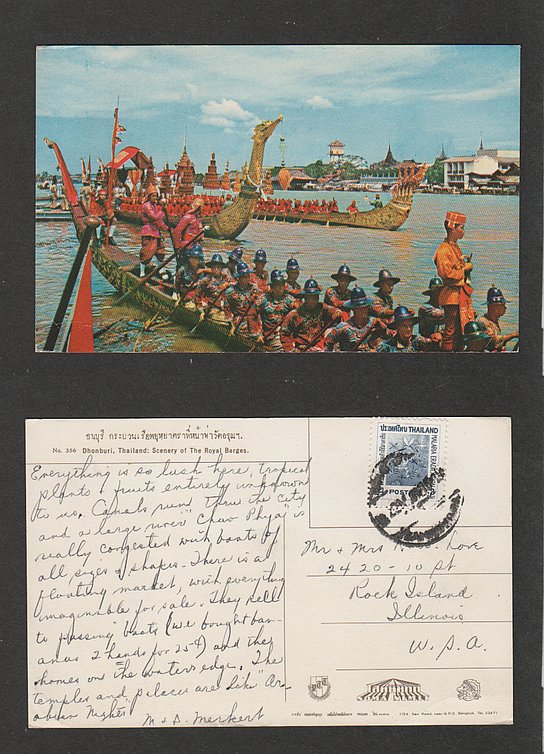 ธนบุรี กระบวนเรือพยุหยาตราที่หน้าพระวัดอรุณฯ.
No. 356 Dhonburi, Thailand: Scenery of The Royal Barges.
Everything is so lush here, tropical
plants & fruits entirely unknown
to us. Canals run thru the city
and a large river "Chao Phya" is
really congested with boats of
all sizes & shapes. There is a
floating market, with everything
imaginable for sale. They sell
to passing boats (we bought ban-
anas 2 hands for 25¢) and they
homes on the waters edge. The
temples and palaces are like "Ar-
abian Nights."
M & D. Merkert
ประเทศไทย THAILAND
POST
Mr & Mrs Love
2420-10 St
Rock Island
Illinois
U.S.A.
1154 New Road, near G.P.O. Bangkok Tel. 33471